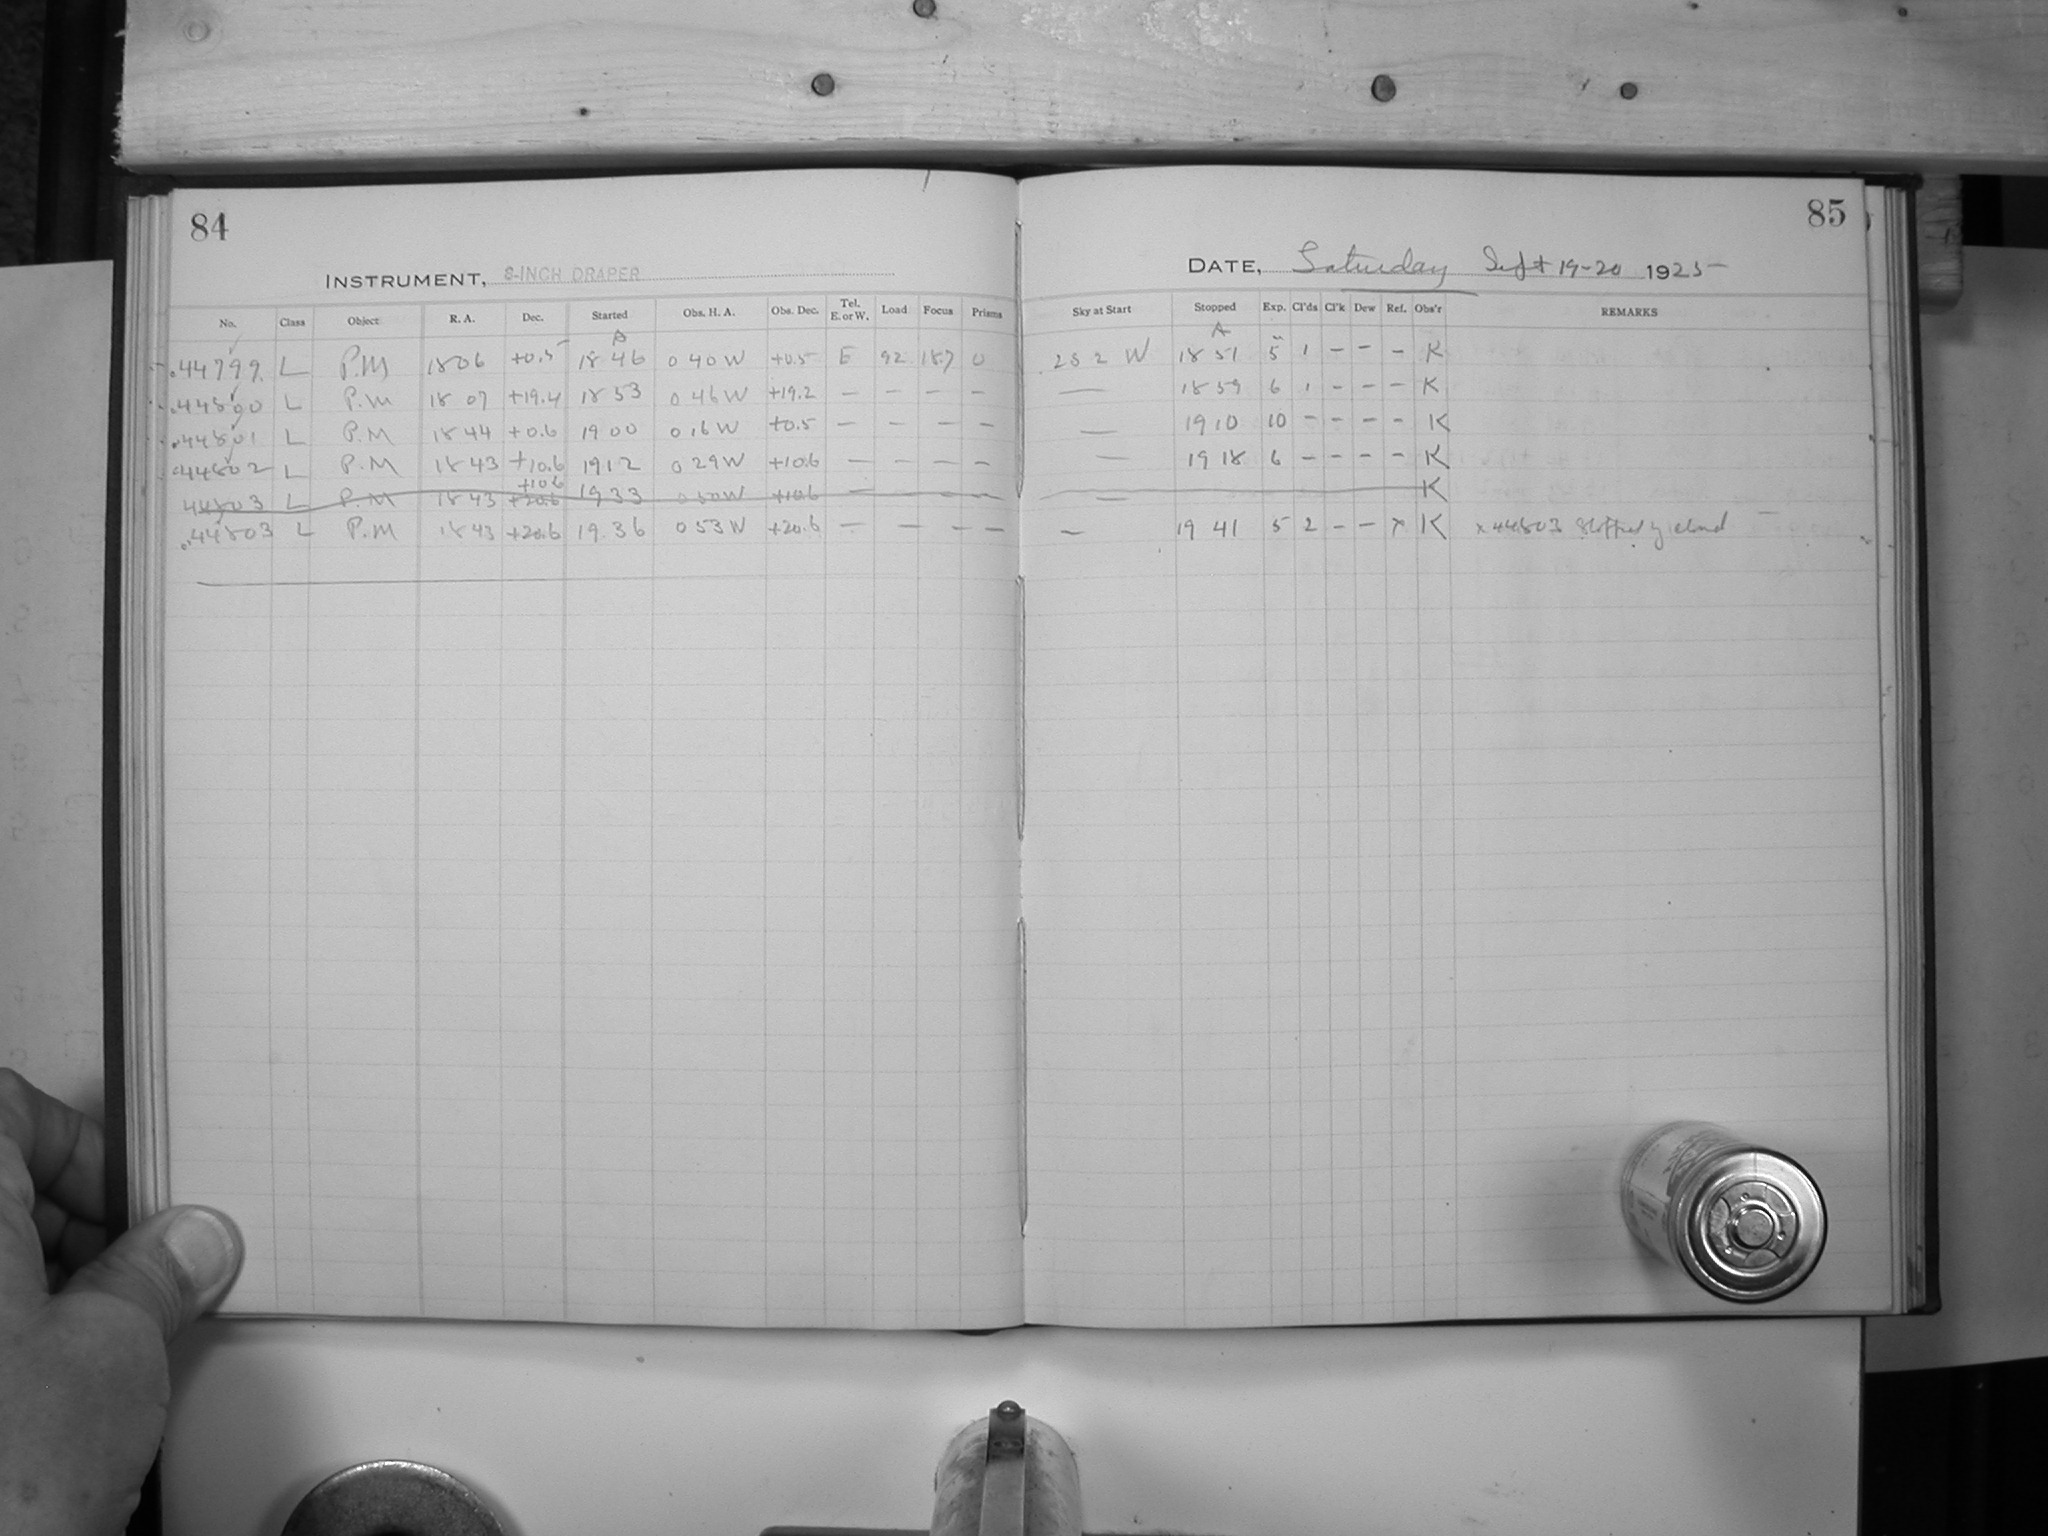 84
INSTRUMENT, 8-INCH DRAPER
No. Class Object R. A. Dec. Started Obs. H. A. Obs. Dec. Tel. E. or W. Load Focus Prisms
A
44799 L P.M 18 06 +0.5 18 46 0 40 W +0.5 E 92 18.7 0
44800 L P.M 18 07 +19.4 18 53 0 46 W +19.2 — — — —
44801 L P.M 18 44 +0.6 19 00 0 16 W +0.5 — — — —
44802 L P.M 18 43 +10.6 19 12 0 29 W +10.6 — — — —
+10.6
44803 L P.M 18 43 +20.6 19 33 0 50 W +10.6 — — — —
44803 L P.M 18 43 +20.6 19.36 0 53 W +20.6 — — — —
85
DATE, Saturday Sept 19-20 1925
Sky at Start Stopped Exp. Cl'ds Cl'k Dew Ref. Obs'r REMARKS
A
2 S 2 W 18 51 5 1 – – – K
— 18 59 6 1 – – – K
— 19 10 10 – – – – K
— 19 18 6 – – – – K
— K
— 19 41 5 2 – – x K x 44803 Stopped by cloud